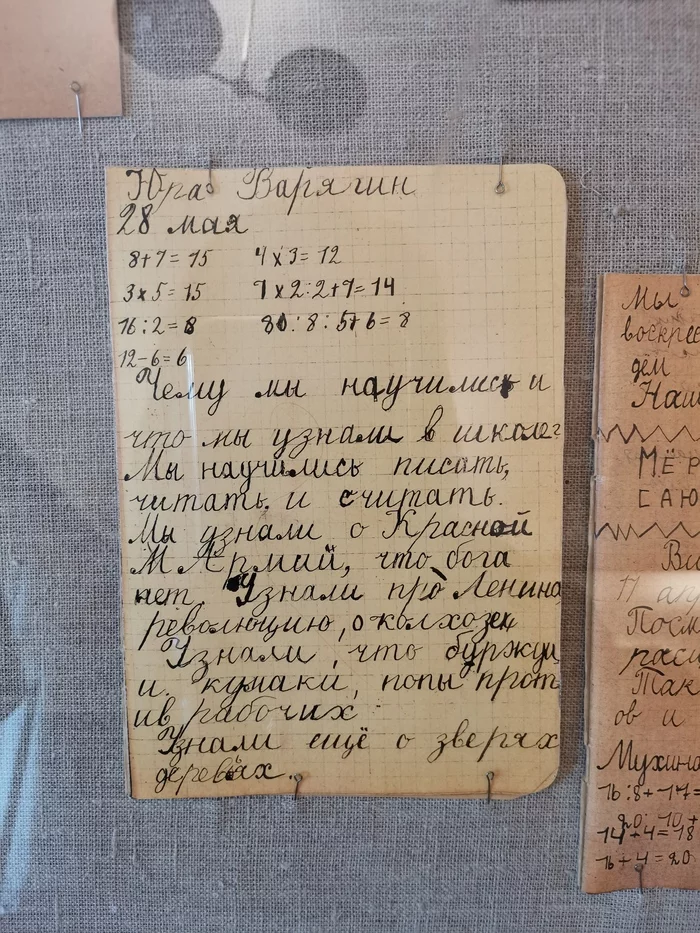 Юра Варягин
28 мая
8+7=15 4x3=12
3x5=15 7x2:2+7=14
16:2=8 80:8:5+6=8
12-6=6
Чему мы научились и
что мы узнали в школе?
Мы научились писать,
читать и считать.
Мы узнали о Красной
М Армий, что бога
нет. Узнали про Ленина,
революцию, о колхозе
Узнали, что буржуи
и кулаки, попы прот
ив рабочих
Узнали ещё о зверях
деревах.
Мы
воскре
дём
Наш
МЁР
САЮ
Ви
11 ап
Посм
расц
Так
ов и
Мухина
16:8+17=
20:10+
14+4=18
16+4=20